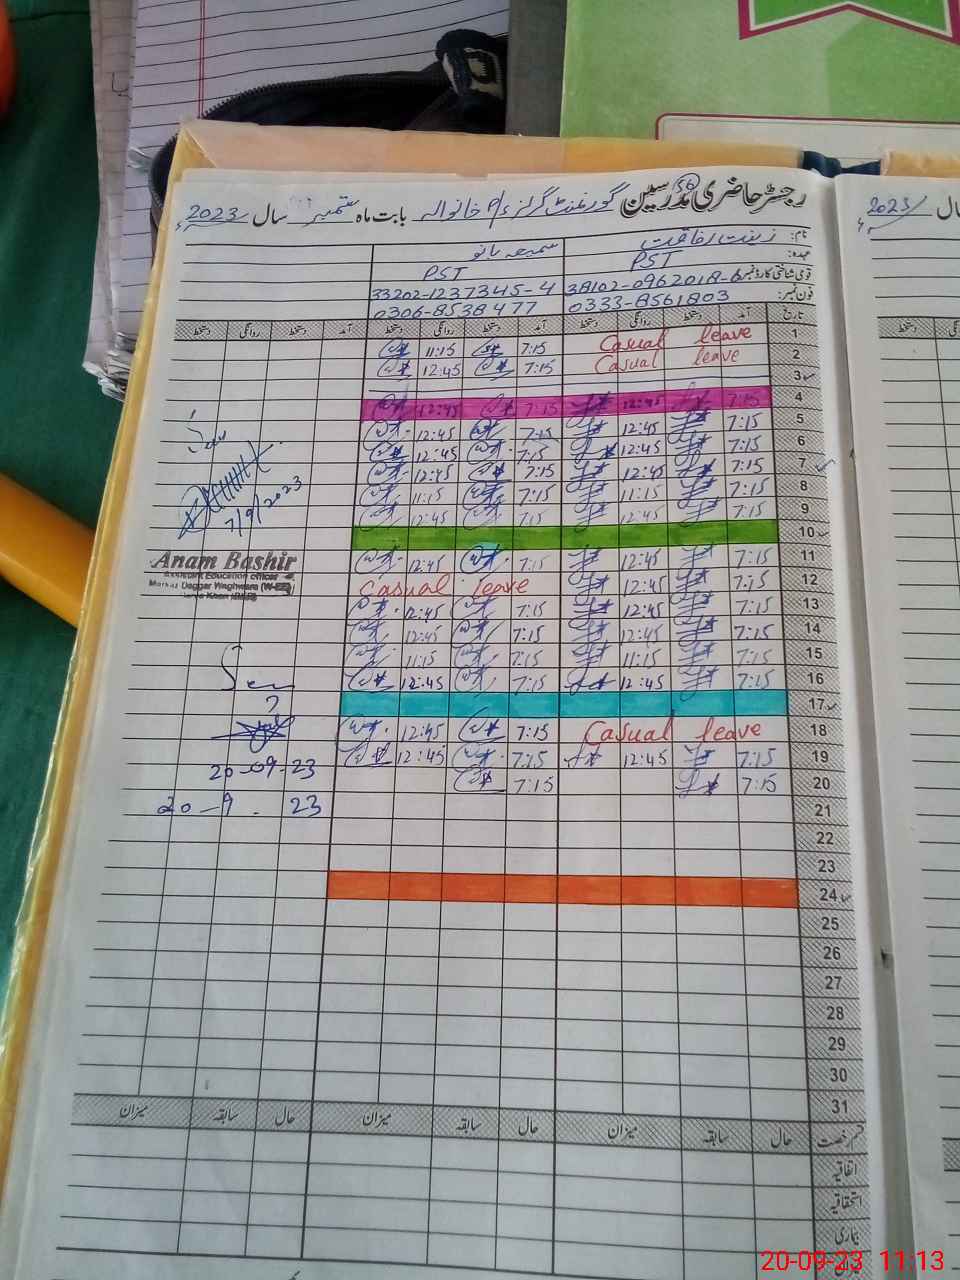 رجسٹر حاضری مدرسین گورنمنٹ گرلز P/S خانوالہ بابت ماہ ستمبر سال 2023ء
2023ء
نام: زینت رفاقت سمیعہ بانو
عہدہ: PST PST
قومی شناختی کارڈ نمبر: 38102-0962018-6 33202-1237345-4
فون نمبر: 0333-8561803 0306-8538477
تاریخ آمد دستخط روانگی دستخط آمد دستخط روانگی دستخط آمد دستخط روانگی دستخط
1 Casual leave 7:15 11:15
2 Casual leave 7:15 12:45
3
4 7:15 12:45 7:15 12:45
5 7:15 12:45 7:15 12:45
6 7:15 12:45 7:15 12:45
7 7:15 12:45 7:15 12:45
8 7:15 11:15 7:15 11:15
9 7:15 12:45 7:15 12:45
10
11 7:15 12:45 7:15 12:45
12 7:15 12:45 Casual leave
13 7:15 12:45 7:15 12:45
14 7:15 12:45 7:15 12:45
15 7:15 11:15 7:15 11:15
16 7:15 12:45 7:15 12:45
17
18 Casual leave 7:15 12:45
19 7:15 12:45 7:15 12:45
20 7:15 7:15
21
22
23
24
25
26
27
28
29
30
31
Seen
7/9/2023
Anam Bashir
Assistant Education officer
Markaz Daggar Waghwara (W-EE)
Seen
20-09-23
20-9-23
قسم رخصت حال سابقہ میزان حال سابقہ میزان حال سابقہ میزان
اتفاقیہ
استحقاقیہ
بیماری
20-09-23 11:13